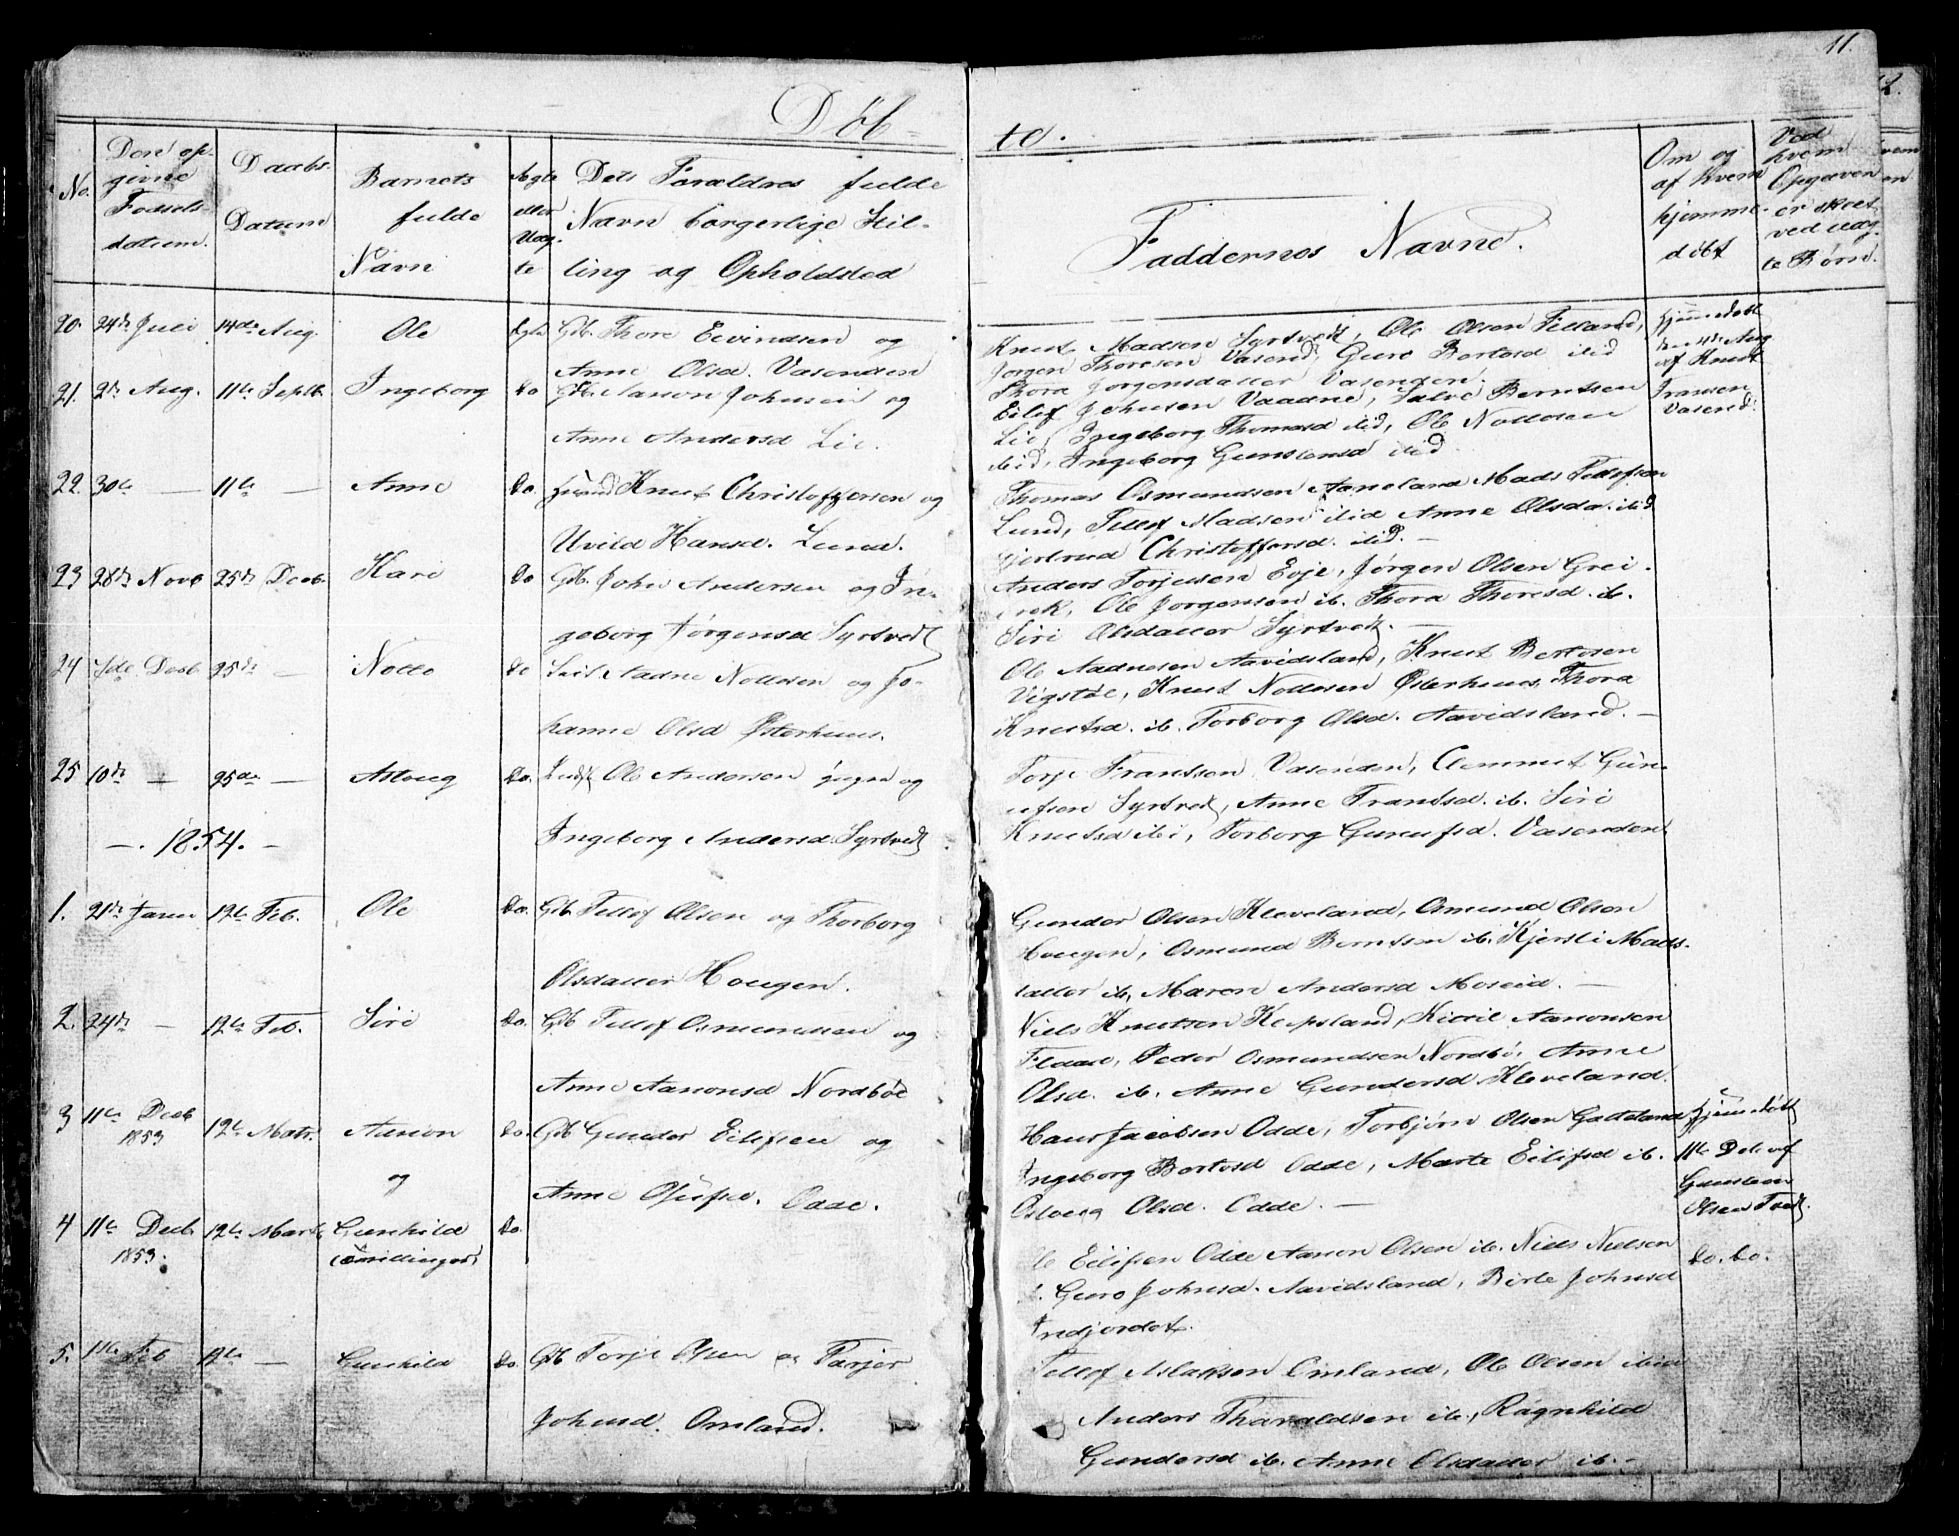 11.
Døb-
te.
No.
Den op-
givne
Fødsels-
datum.
Daabs-
Datum
Barnets
fulde
Navn
Ægte
eller
Uæg-
te
Dets Forældres fulde
Navn borgerlige Stil-
ling og Opholdsted
Faddernes Navne.
Om og
af hvem
hjemme-
døbt
Ved
hvem
Opgaven
er skeet
ved uæg-
te Børn.
20. 24de Juli 14de Aug. Ole Egte Gdb. Thore Eivindsen og
Anne Olsd. Vasenden
Knut Madsen Syrtvedt, Ole Olsen Fælland,
Jørgen Thoresen Vasend, Guro Bertesd ibid
Thora Jørgensdatter Vasenden.
Hjemmedøbt
den 4de Aug
af Knut
Fransen
Vasend.
21. 2de Aug. 11te Septb. Ingeborg Do Gdb. Aanon Johnsen og
Anne Andersd Lie.
Eilef Johnsen Vaadne, Salve Berntsen
Lie, Ingeborg Thomasd ibid, Ole Nottosen
ibid, Ingeborg Gunstensd ibid
22. 30te — 11te — Anne Do. Knut Christoffersen og
Uvild Hansd. Lund.
Thomas Osmundsen Aaneland Mads Tellefsen
Lund, Tellef Madsen ibid Anne Olsda. ibid
Gjertrud Christoffersd. ibid. —
23 28de Novb 25de Decb. Kari Do Gdb. John Andersen og In-
geborg Jørgensd Syrtvedt
Anders Torjeusen Evje, Jørgen Olsen Grei-
Ole Jørgensen ib. Thora Thoresd. ib.
Siri Olsdatter Syrtvedt. —
24 7de Decb 25de — Notto Do Aadne Nottosen og Jo-
hanne Olsd Østerhuus.
Ole Aadnesen Aavidsland, Knut Bertesen
Vigstøl, Knut Nottosen Østerhuus, Thora
Knutsd. ib. Torborg Olsd. Aavidsland. —
25 10de — 25de — Aslaug Do. Ole Andersen og
Ingeborg Andersd. Syrtvedt
Torje Frantsen Vasenden, Clemmet Gun-
ufsen Syrtvedt, Anne Frantsd. ib. Siri
Knutsd ibi, Torborg Gunufsd. Vasenden
—. 1854. —
1. 21de Janu 12te Feb. Ole Do. Gdb. Tellef Olsen og Thorborg
Olsdatter Hougen.
Gunder Olsen Kleveland, Osmund Olsen
Hougen, Osmund Berntsen ib. Kjersti Mads-
datter ib, Maren Andersd Moseid. —
2. 24de — 12te Feb. Siri Do. Gdb Tellef Osmundsen og
Anne Aanonsd Nordbøe
Niels Knutsen Keipsland, Kittil Aanonsen
Flaat, Peder Osmundsen Nordbø, Anne
Olsd. ib. Anne Gundersd Kleveland.
3 11te Decb
1853
12te Marts. Aanon
og
Do. Gdb Gunder Eilifsen og
Anne Olufsd. Odde.
Hans Jacobsen Odde, Torbjørn Olsen Gatteland
Ingeborg Bertesd Odde, Marte Eilifsd ib.
Aslaug Olsd. Odde. —
Hjemmedøbt
11te Decb af
Gunsteen
Olsen Tvedt.
4 11te Decb.
1853.
12te Marts Gunhild
(Tvillinger)
Do.
Eilifsen Odde Aanon Olsen ib. Niels Nielsen
Guro Johnsd. Aavidsland, Birte Johnsd
Indjordet.
Do. Do.
5. 11te Feb 12te — Gunhild Do. Gdb Torje Olsen og Tarjer
Johnsd. Omland.
Tellef Aslaksen Omland, Ole Olsen ibid
Anders Tharaldsen ib., Ragnhild
Gundersd ib. Anne Olsdatter ib. —